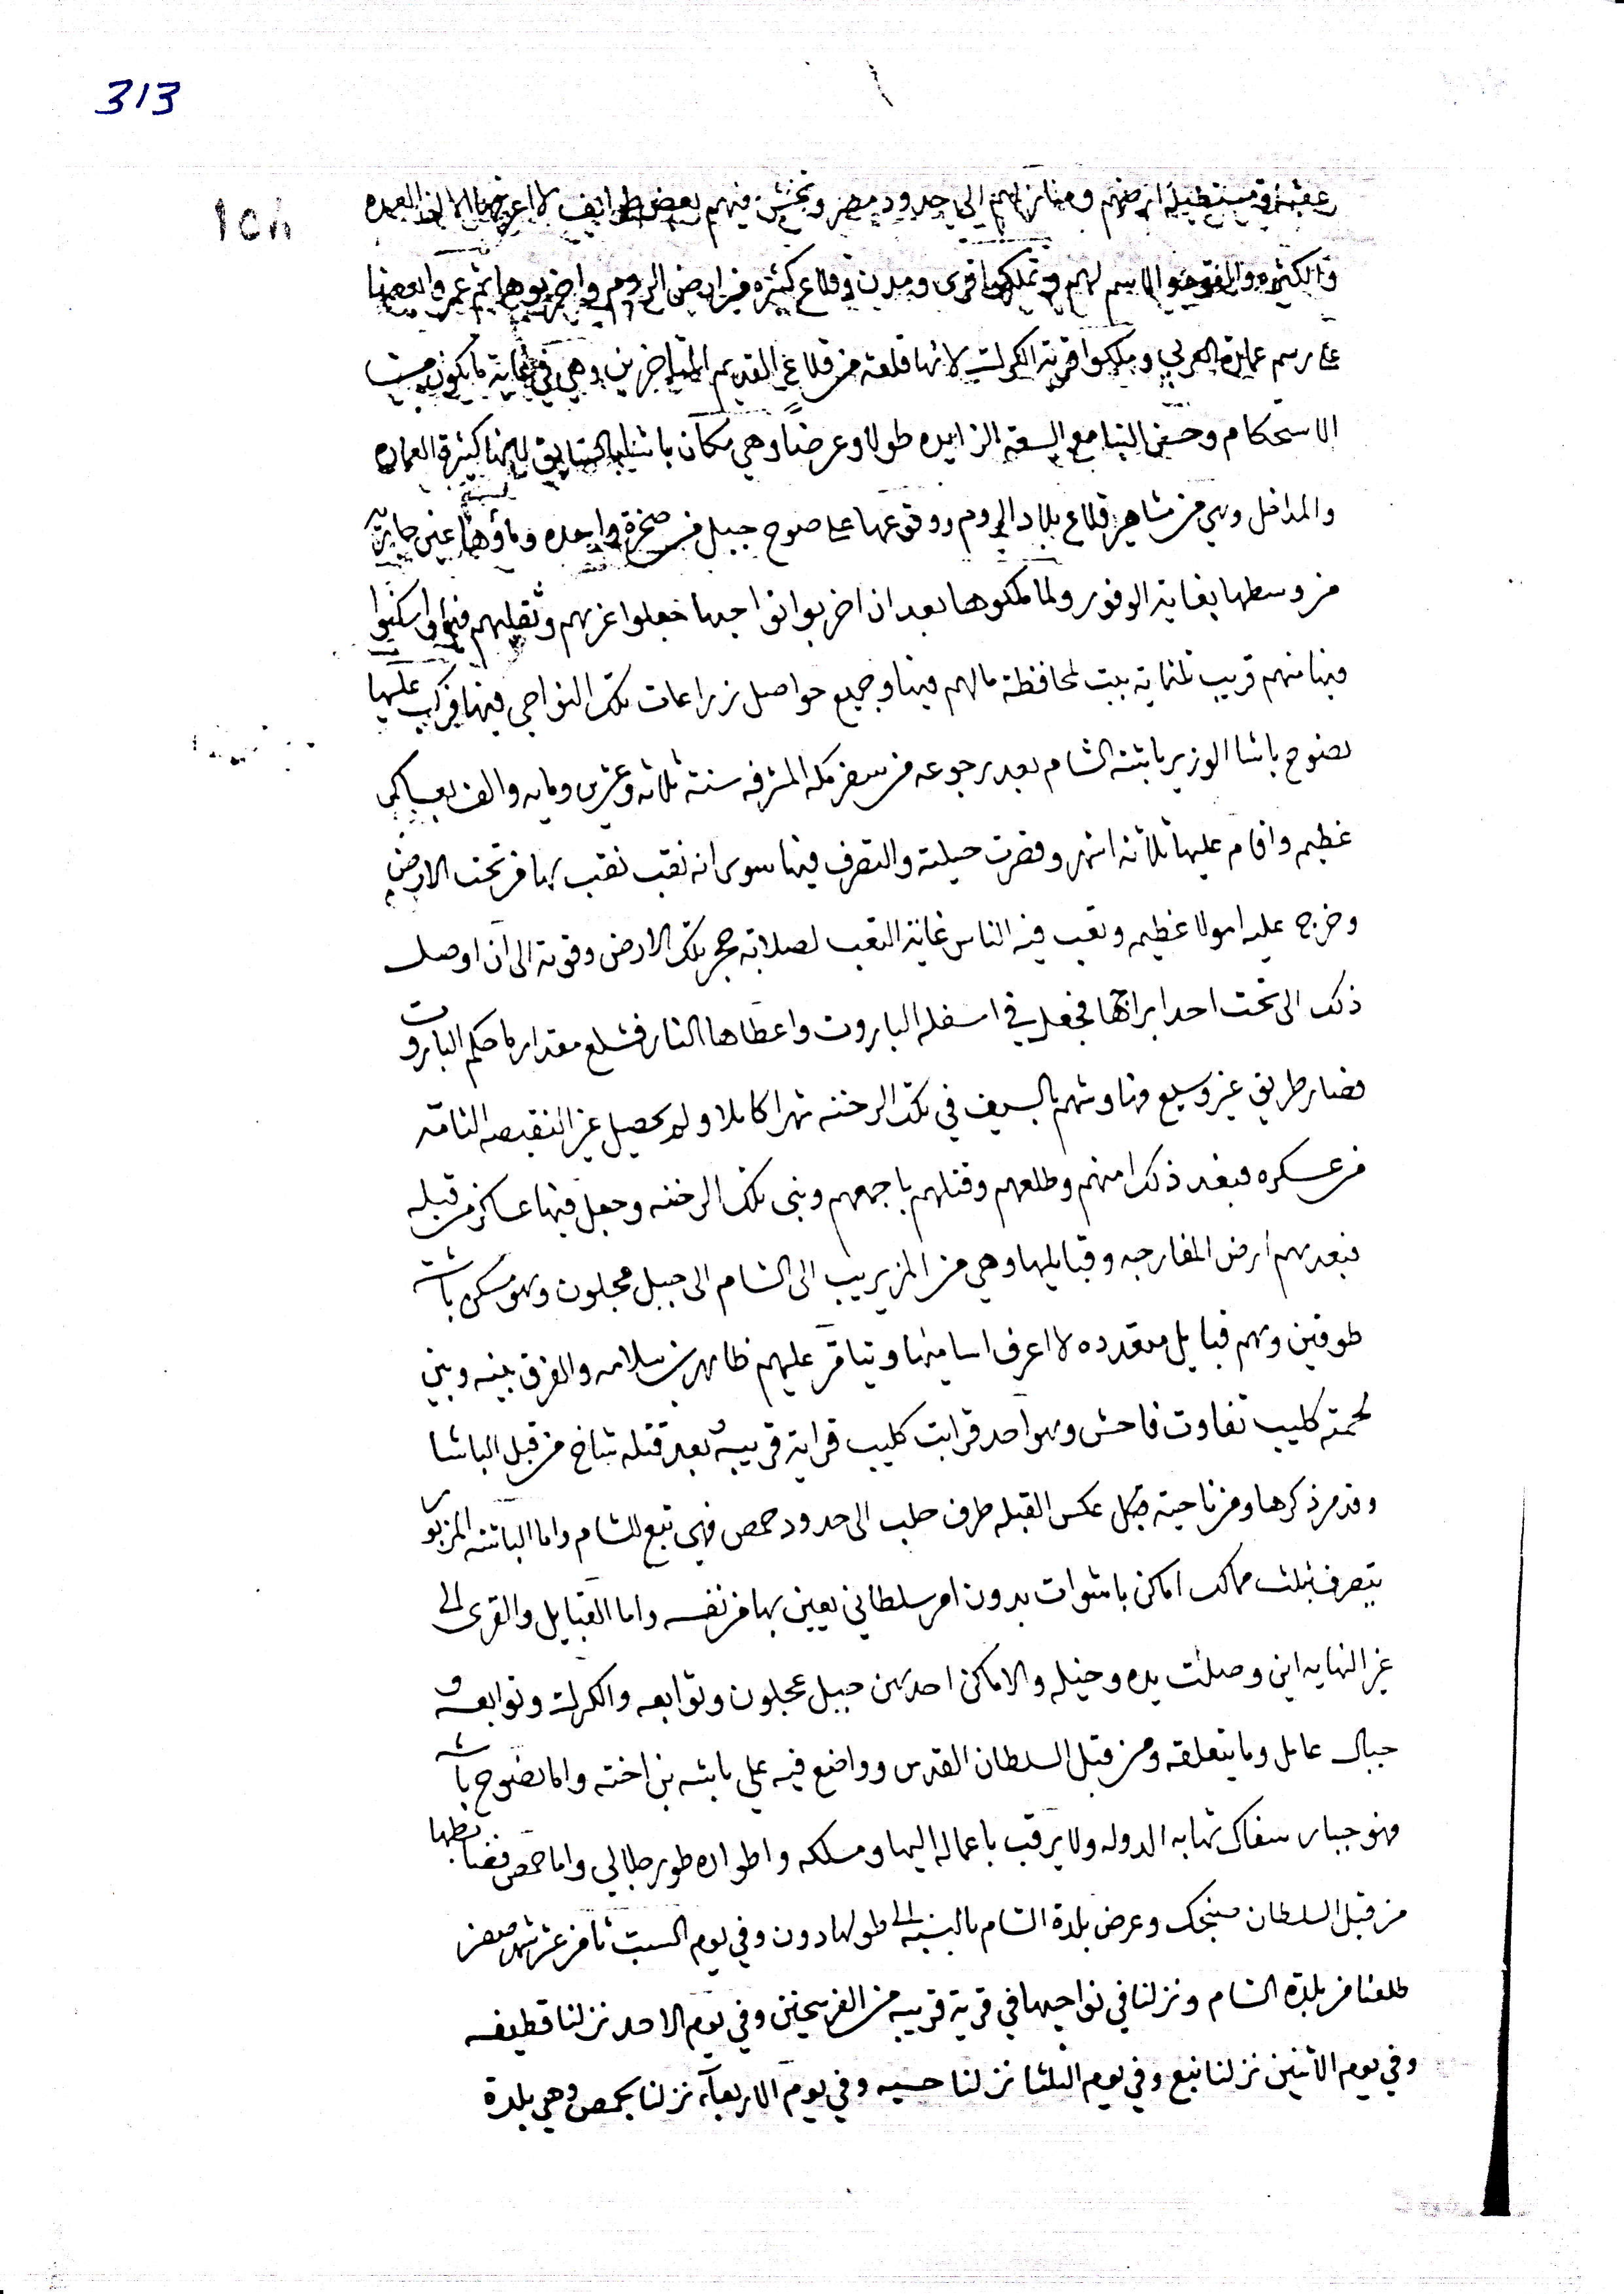 313
مستطيله ارضهم ومنازلهم الى حدود مصر وتخش فيهم بعض طوايف لا اعرفها الا
والكثيره وتملكوا قرى ومدن وقلاع كثيره من ارض الروم واخربوها ثم عمروا بعضها
على رسم عمارة العرب وملكوا قرية الكرك لانها قلعه من قلاع القديم المتاخرين وهي في غاية ما يكون من حيث
الاستحكام وحسن البنا مع السعة الزايده طولا وعرضا وهي مكان باشا بالسابق لانها كثيرة العماره
والمداخل وهي من مشاهير قلاع بلاد الروم ووقوعها على صوح جبل من صخرة واحده وماؤها عين جاريه
من وسطها بغاية الوفور ولما ملكوها بعد ان اخربوا نواحيها جعلوا عزهم وثقلهم فيها واسكنوا
فيها منهم قريب ثلثماية بيت لمحافظة مالهم فيها وجميع حواصل زراعات تلك النواحي فيها فركب عليها
نصوح باشا الوزير باشة الشام بعد رجوعه من سفر مكه المشرفه سنة ثلاثه وعشرين ومايه والف بعساكر
عظيم واقام عليها ثلاثة اشهر وقصرت حيلته والتصرف فيها سوى انه نقب نقب بها من تحت الارض
وخرج عليه امولا عظيمه وتعب فيه الناس غاية التعب لصلابة حجر تلك الارض وقوته الى ان اوصل
ذلك الى تحت احد ابراجها فجعل في اسفله الباروت واعطاها النار فشلع مقدار ما حكم الباروت
فصار طريق غير وسيع وناوشهم بالسيف في تلك الرخنه شهرا كاملا ولم يحصل غير النقيصه التامة
من عسكره فبعد ذلك امنهم وطلعهم وقتلهم باجمعهم وبنى تلك الرخنه وجعل فيها عساكر من قبله
فبعدهم ارض المفارجه وقبايلها وهي من المزيريب الى الشام الى جبل عجلون وهو مسكن باشة
طوقين وهم قبايل متعدده لا اعرف اساميها ويتامر عليهم ظاهر بن سلامه والفرق بينه وبين
لحمة كليب تفاوت فاحش وهو احد قرابت كليب قرابة قريبه بعد قتله شاخ من قبل الباشا
وقد مر ذكرها ومن ناحية قبل عكس القبله طرف حلب الى حدود حمص فهي تبع للشام واما الباشه المزبور
يتصرف بثلث ممالك اماكن باشوات بدون امر سلطاني يعين بها من نفسه واما القبايل والقرى الى
غير النهايه اين وصلت يده وخيله والاماكن احدهن جبل عجلون وتوابعه والكرك وتوابعه و
جبال عامل وما يتعلقه ومن قبل السلطان القدس وواضع فيه علي باشه بن اخته واما نصوح باشه
فهو جبار سفاك تهابه الدوله ولا يرقب باعماله اليها ومسلكه واطواره طور جلالي واما حمص فضابطها
من قبل السلطان سنجك وعرض بلدة الشام بالنسبه الى طولها دون وفي يوم السبت ثامن عشر شهر صفر
طلعنا من بلدة الشام ونزلنا في نواحيها في قرية قريبه من الفرسخين وفي يوم الاحد نزلنا قطيفه
وفي يوم الاثنين نزلنا نبع وفي يوم الثلثا نزلنا حسيه وفي يوم الاربعآء نزلنا بحمص وهي بلدة